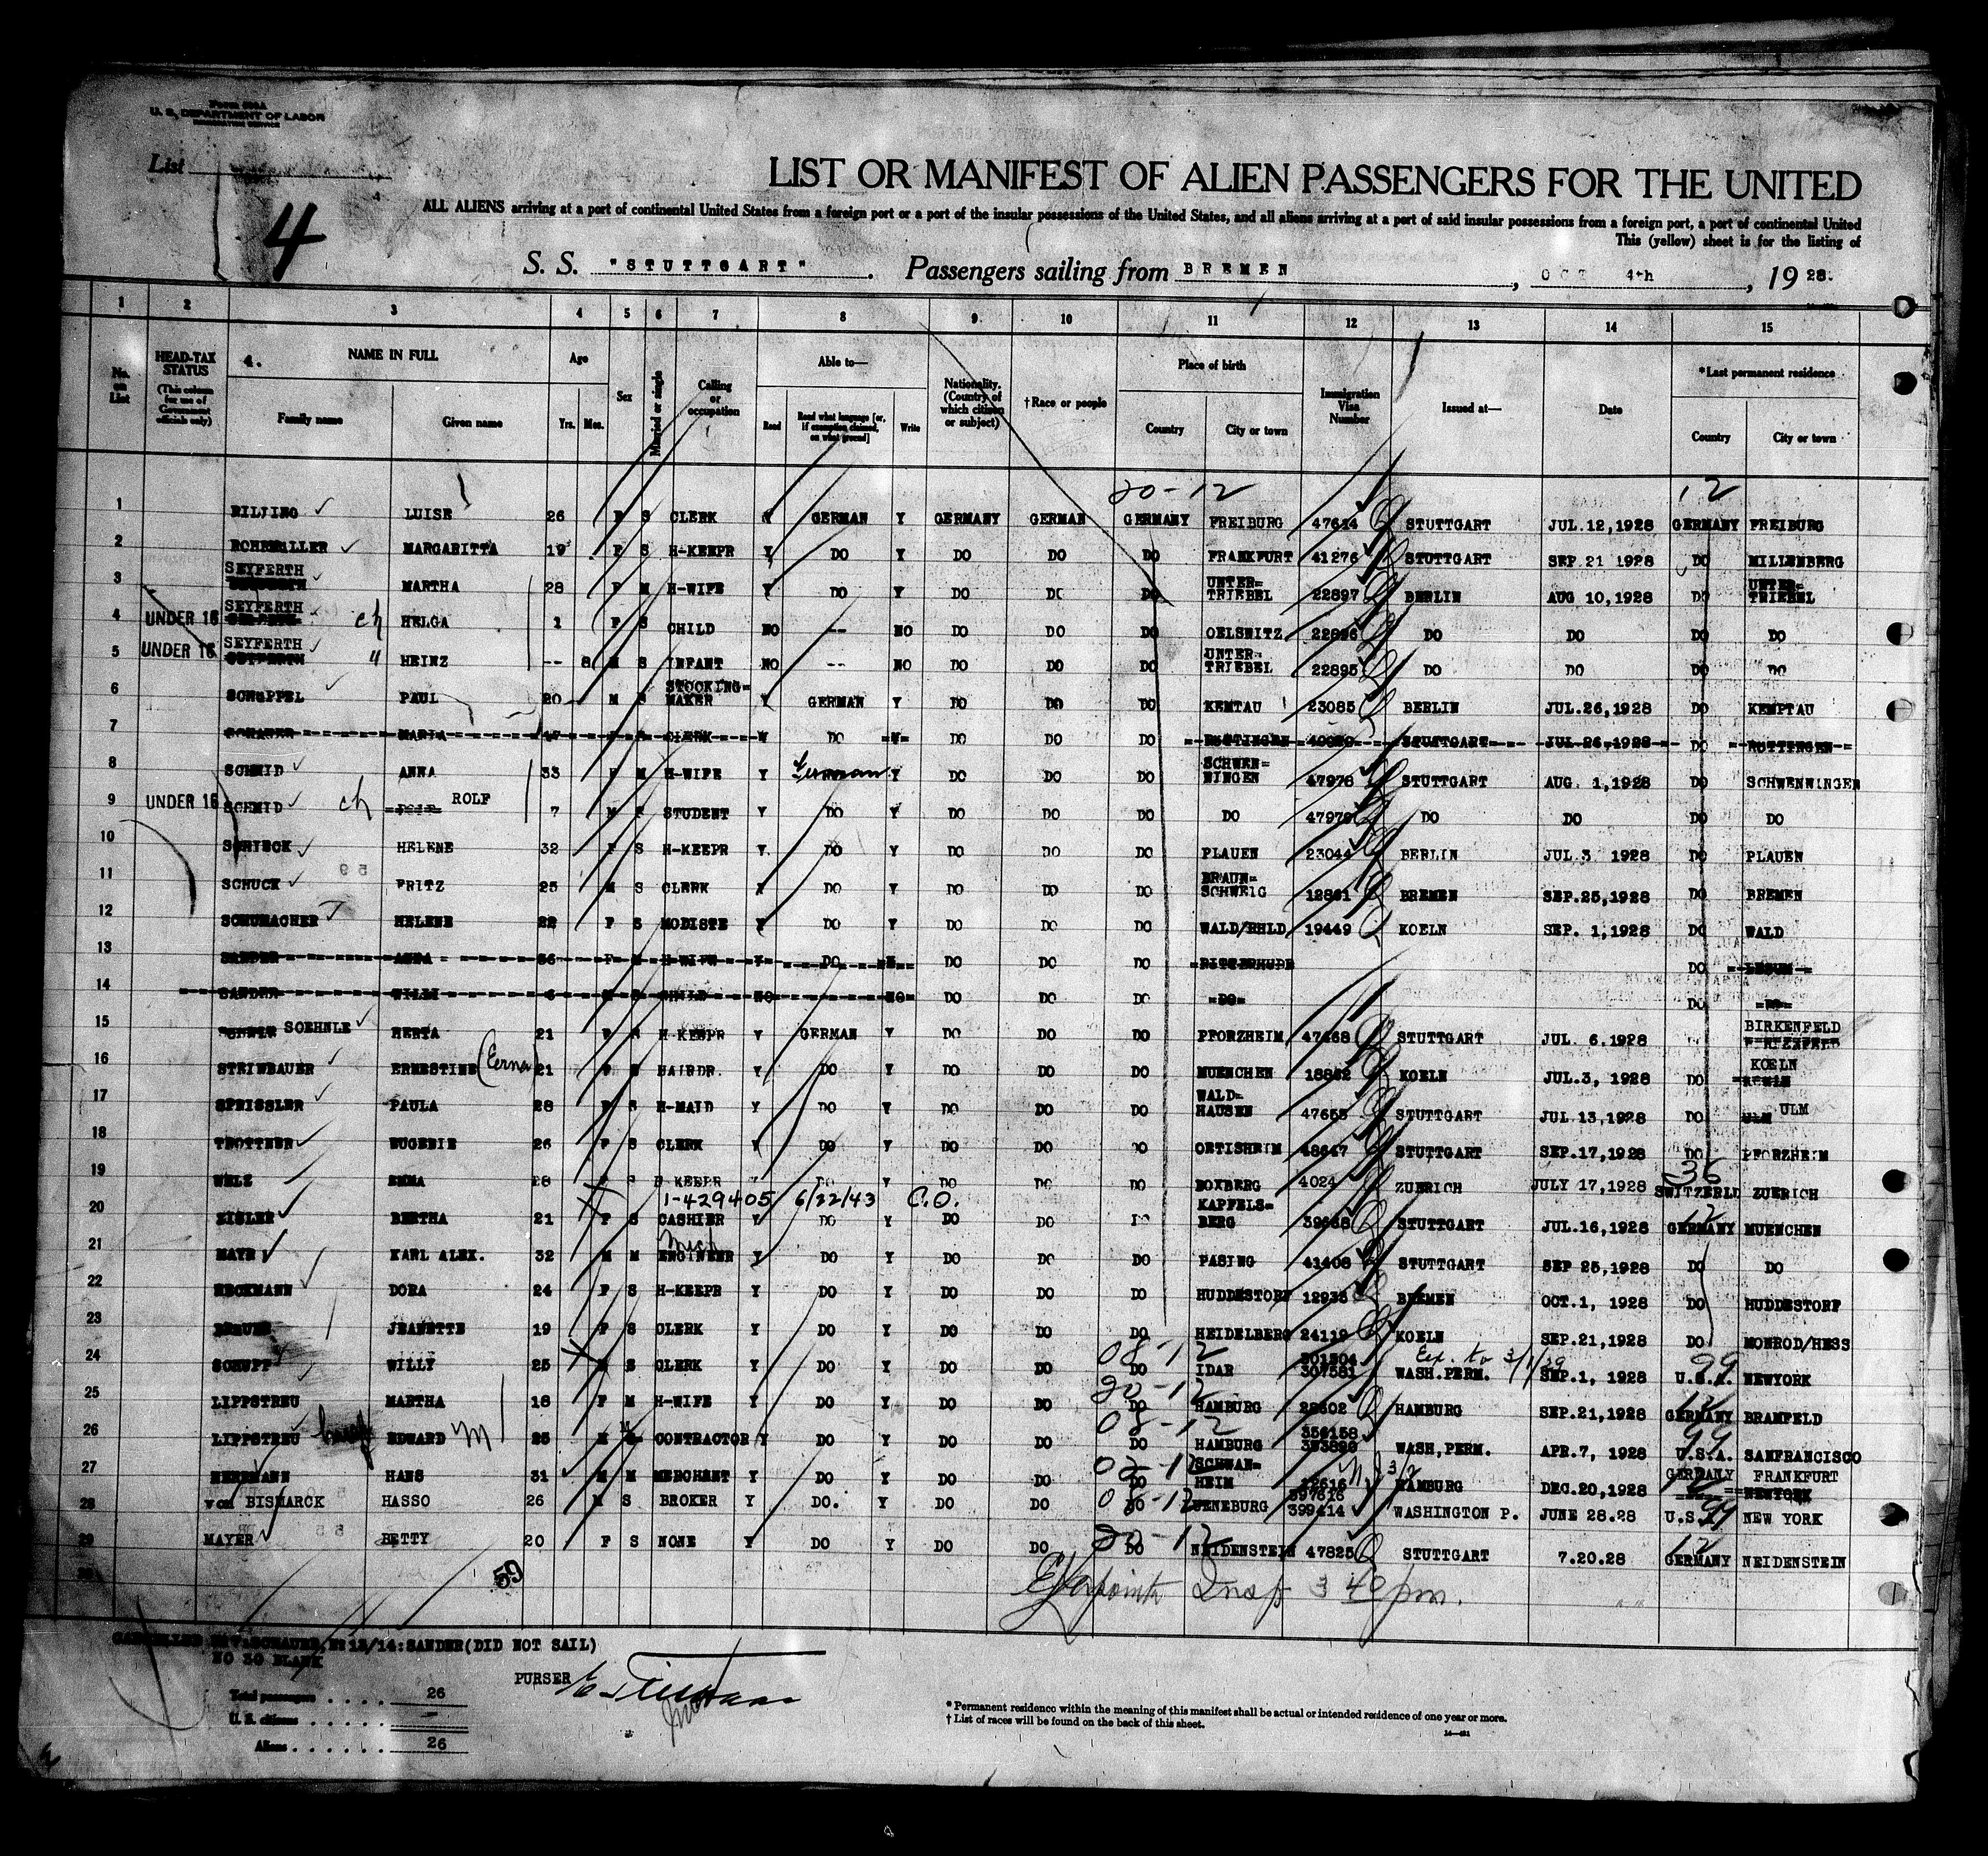 Form 500A
U. S. DEPARTMENT OF LABOR
IMMIGRATION SERVICE
List
4
LIST OR MANIFEST OF ALIEN PASSENGERS FOR THE UNITED
ALL ALIENS arriving at a port of continental United States from a foreign port or a port of the insular possessions of the United States, and all aliens arriving at a port of said insular possessions from a foreign port, a port of continental United
This (yellow) sheet is for the listing of
S. S. "STUTTGART". Passengers sailing from BREMEN, OCT 4th, 19 28.
1 2 3 4 5 6 7 8 9 10 11 12 13 14 15
No. on List HEAD-TAX STATUS (This column for use of Government officials only) 4. NAME IN FULL Family name Given name Age Yrs. Mos. Sex Married or single Calling or occupation Able to— Read Read what language [or, if exemption claimed, on what ground] Write Nationality. (Country of which citizen or subject) †Race or people Place of birth Country City or town Immigration Visa Number Issued at— Date *Last permanent residence Country City or town
20-12 12
1 LUISE 26 F S CLERK Y GERMAN Y GERMANY GERMAN GERMANY FREIBURG 47644 STUTTGART JUL.12,1928 GERMANY FREIBURG
2 MARGARITTA 19 F S H-KEEPR Y DO Y DO DO DO FRANKFURT 41276 STUTTGART SEP.21 1928 DO MILLENBERG
3 SEYFERTH MARTHA 28 F M H-WIFE Y DO Y DO DO DO UNTER=TRIEBEL 22897 BERLIN AUG 10,1928 DO UNTER=TRIEBEL
4 UNDER 16 SEYFERTH ch HELGA 1 F S CHILD NO -- NO DO DO DO OELSNITZ 22896 DO DO DO DO
5 UNDER 16 SEYFERTH " HEINZ -- 8 M S INFANT NO -- NO DO DO DO UNTER=TRIEBEL 22895 DO DO DO DO
6 SCHUPPEL PAUL 20 M S STOCKING=MAKER Y GERMAN Y DO DO DO KEMTAU 23085 BERLIN JUL.26,1928 DO KEMPTAU
7 MARIA 17 F S CLERK Y DO Y DO DO DO STUTTGART JUL 26,1928 DO
8 SCHMID ANNA 33 F M H-WIFE Y German Y DO DO DO SCHWEN=NINGEN 47978 STUTTGART AUG. 1,1928 DO SCHWENNINGEN
9 UNDER 16 SCHMID ch ROLF 7 M S STUDENT Y DO Y DO DO DO DO 47979 DO DO DO DO
10 SCHIECK HELENE 32 F S H-KEEPR Y DO Y DO DO DO PLAUEN 23044 BERLIN JUL.3 1928 DO PLAUEN
11 SCHUCK FRITZ 25 M S CLERK Y DO Y DO DO DO BRAUN=SCHWEIG 12861 BREMEN SEP.25,1928 DO BREMEN
12 SCHUMACHER HELENE 22 F S MODISTE Y DO Y DO DO DO WALD/RHLD 19449 KOELN SEP. 1,1928 DO WALD
13 SANDER ANNA 36 F M H-WIFE Y DO DO DO DO =RITTERHUDE DO =LESUM=
14 SANDER WILLI 6 M S CHILD NO NO DO DO DO =DO= DO =DO=
15 SOEHNLE HERTA 21 F S H-KEEPR Y GERMAN Y DO DO DO PFORZHEIM 47468 STUTTGART JUL. 6.1928 BIRKENFELD
16 STEINBAUER ERNESTINE (Erna) 21 F S HAIRDR. Y DO Y DO DO DO MUENCHEN 18862 KOELN JUL.3, 1928 DO KOELN
17 SPEISSLER PAULA 28 F S H-MAID Y DO Y DO DO DO WALD=HAUSEN 47655 STUTTGART JUL 13,1928 DO ULM ULM
18 TROTTNER EUGENIE 26 F S CLERK Y DO Y DO DO DO ORTISHEIM 48647 STUTTGART SEP.17,1928 DO PFORZHEIM
19 WELZ EMMA 28 F S H-KEEPR Y DO Y DO DO DO BOXBERG 4024 ZUERICH JULY 17,1928 36 SWITZERLD ZUERICH
1-429405 6/22/43 C.O.
20 EISLER BERTHA 21 F S CASHIER Y DO Y DO DO DO KAPFELS=BERG 39668 STUTTGART JUL.16,1928 12 GERMANY MUENCHEN
21 MAYR KARL ALEX. 32 M M Mech ENGINEER Y DO Y DO DO DO PASING 41408 STUTTGART SEP 25,1928 DO DO
22 HECKMANN DORA 24 F S H-KEEPR Y DO Y DO DO DO HUDDESTORF 12938 BREMEN OCT.1, 1928 DO HUDDESTORF
23 JEANETTE 19 F S CLERK Y DO Y DO DO DO HEIDELBERG 24119 KOELN SEP.21,1928 DO MONROD/HESS
24 SCHUPP WILLY 25 M S CLERK Y DO Y DO DO 08-12 DO IDAR 301504 307581 Ex. to 3/1/29 WASH.PERM. SEP.1, 1928 99 U.S.A. NEWYORK
25 LIPPSTREU MARTHA 18 F M H-WIFE Y DO Y DO DO 20-12 DO HAMBURG 28602 HAMBURG SEP.21,1928 12 GERMANY BRAMFELD
26 LIPPSTREU EDWARD M 25 M M CONTRACTOR Y DO Y DO DO 08-12 DO HAMBURG 356158 WASH,PERM. APR.7, 1928 99 U.S.A. SANFRANCISCO
27 HERRMANN HANS 31 M M MERCHANT Y DO Y DO DO 02-12 DO SCHWAN=HEIM 12616 HAMBURG DEC.20,1928 GERMANY FRANKFURT =NEWYORK
28 von BISMARCK HASSO 26 M S BROKER Y DO. Y DO DO 08-12 DO LUENEBURG 397616 399414 WASHINGTON P. JUNE 28.28 U.S.A 99 NEW YORK
29 MAYER BETTY 20 F S NONE Y DO Y DO DO 20-12 DO NEIDENSTEIN 47825 STUTTGART 7.20.28 12 GERMANY NEIDENSTEIN
30 59 Insp 3 40 pm.
CANCELLED Nr 7:SCHAUER, Nr 13/14:SANDER(DID NOT SAIL)
NO 30 BLANK
PURSER
Total passengers . . . . 26
U. S. citizens . . . . . -
Aliens . . . . . . 26
* Permanent residence within the meaning of this manifest shall be actual or intended residence of one year or more.
† List of races will be found on the back of this sheet.